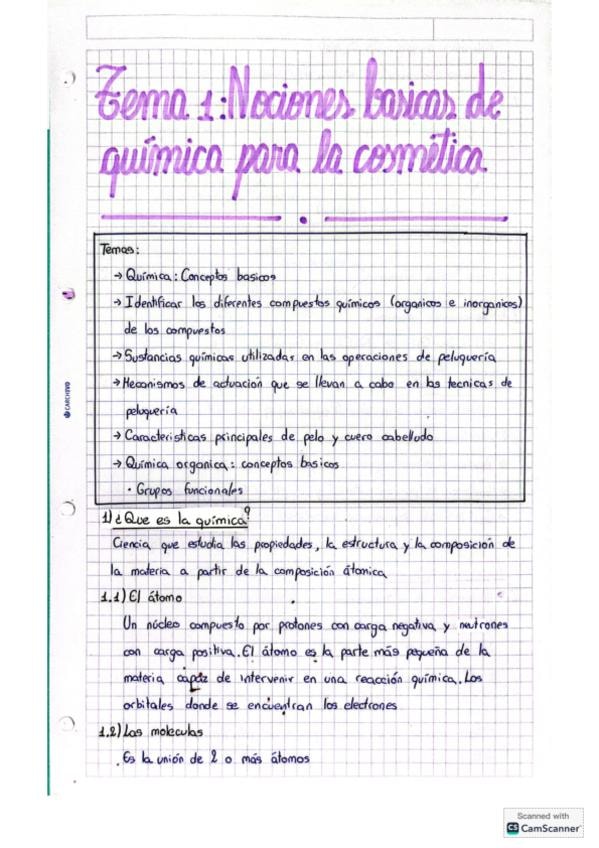 Tema 1: Nociones basicas de
química para la cosmética
Temas:
→ Química: Conceptos basicos
→ Identificar los diferentes compuestos químicos (organicos e inorganicos)
de los compuestos
→ Sustancias químicas utilizadas en las operaciones de peluquería
→ Mecanismos de actuación que se llevan a cabo en las tecnicas de
peluquería
→ Caracteristicas principales de pelo y cuero cabelludo
→ Química organica: conceptos basicos
· Grupos funcionales
1) ¿Que es la química?
Ciencia que estudia las propiedades, la estructura y la composición de
la materia a partir de la composición átomica
1.1) El átomo
Un núcleo compuesto por protones con carga negativa y neutrones
con carga positiva. El átomo es la parte más pequeña de la
materia capaz de intervenir en una reacción química. Los
orbitales donde se encuentran los electrones
1.2) Las moleculas
Es la unión de 2 o más átomos
CARCHIVO
Scanned with
CS CamScanner